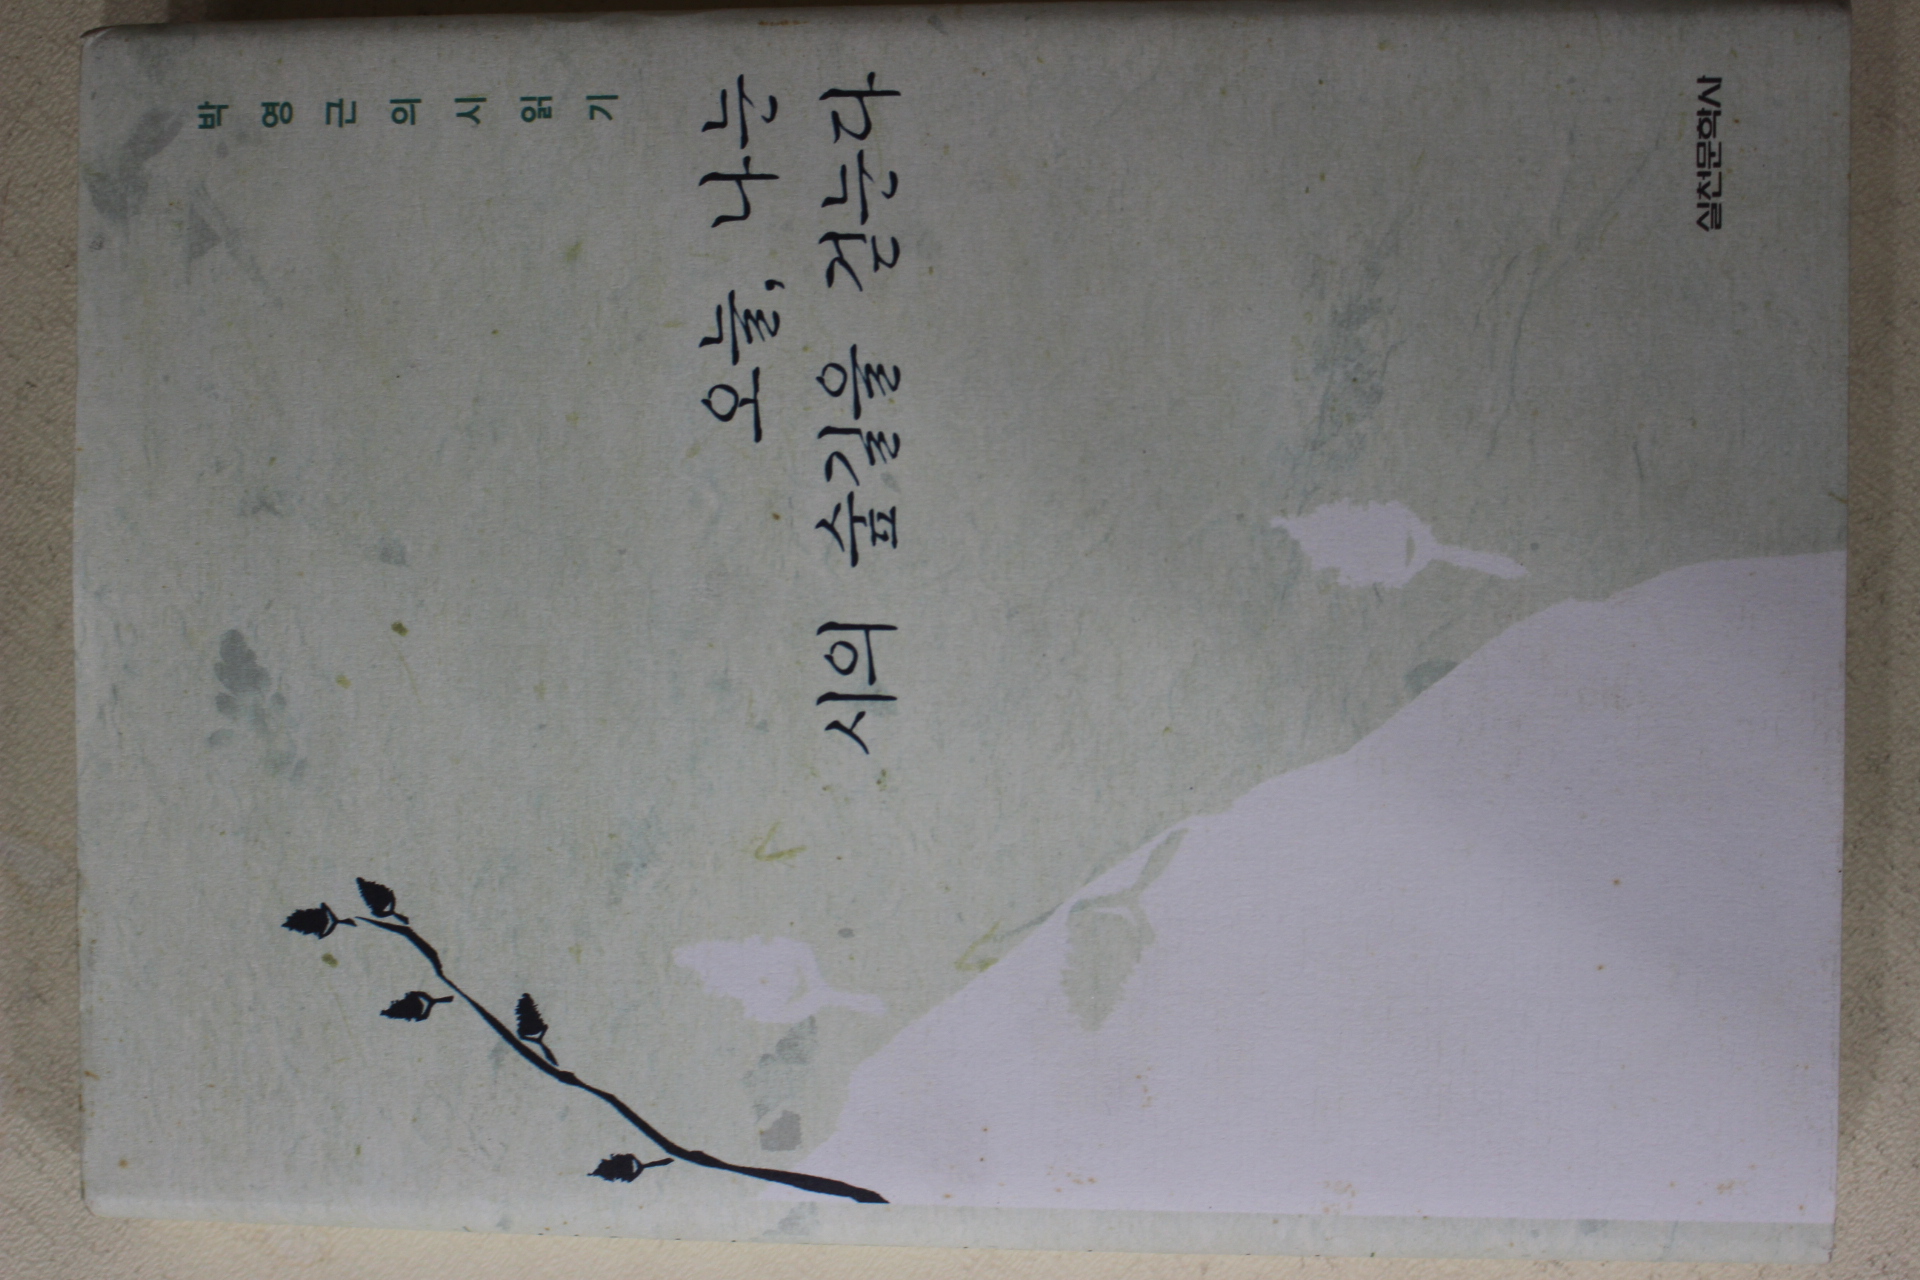 박영근의 시 읽기
오늘, 나는
시의 숲길을 걷는다
실천문학사